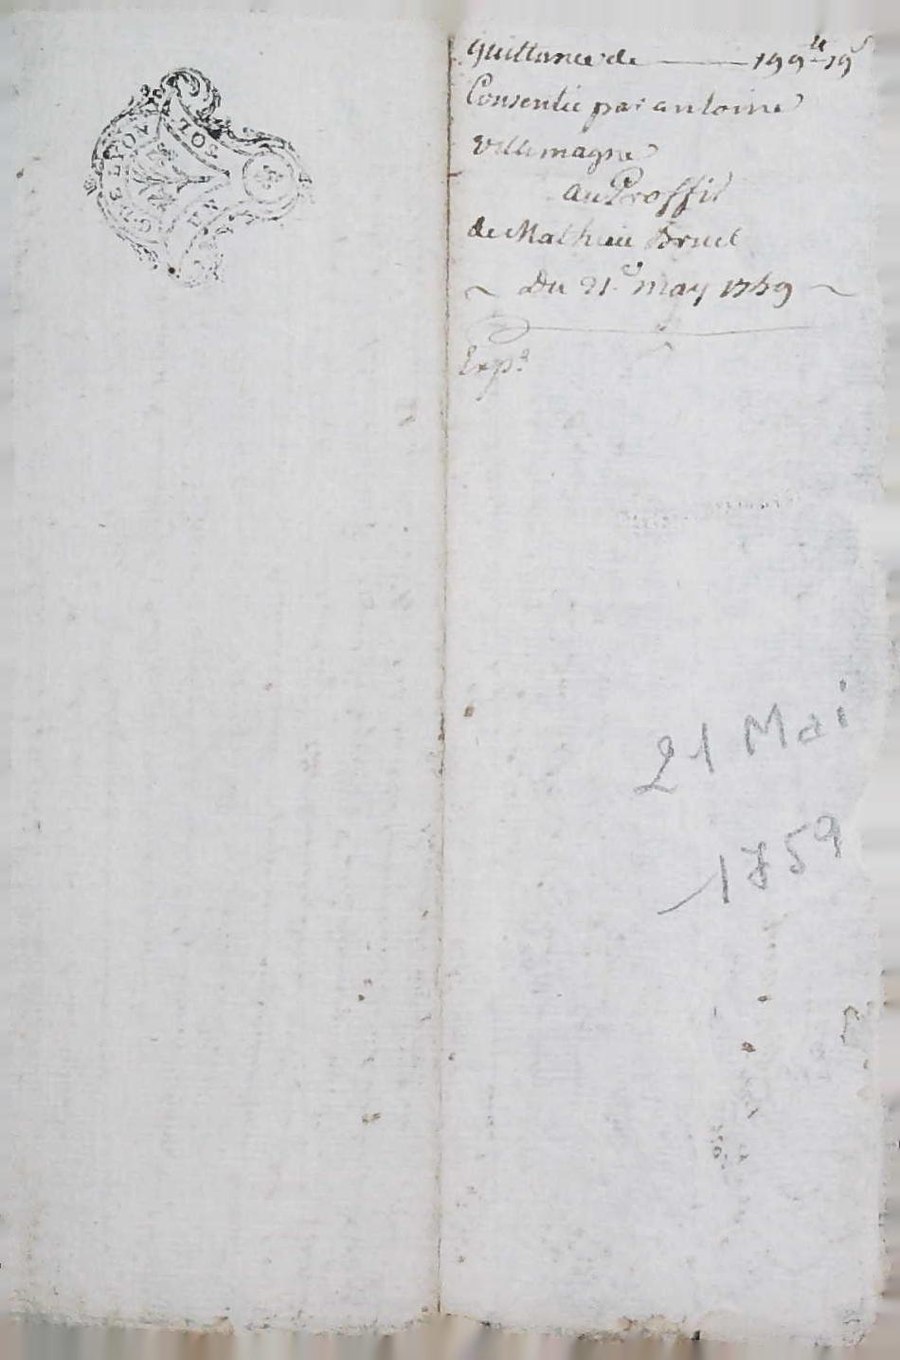 Quittance de — 199ᵗᵗ 19ˢ
Consentie par antoine
Villemagne
au Proffit
de Mathieu Bruel
~ Du 21ᵉ may 1759 ~
Exp.ᵉ
21 Mai
1759